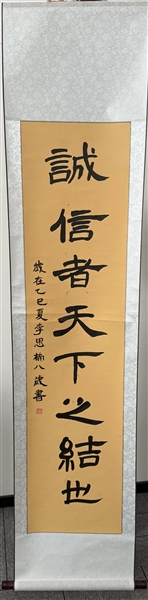 誠信者天下之結也
歲在乙巳夏李思楠八歲書